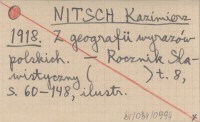 NITSCH Kazimierz
1918. Z geografii wyrazów
polskich. – Rocznik Sla-
wistyczny ( ) t. 8,
s. 60–148, ilustr.